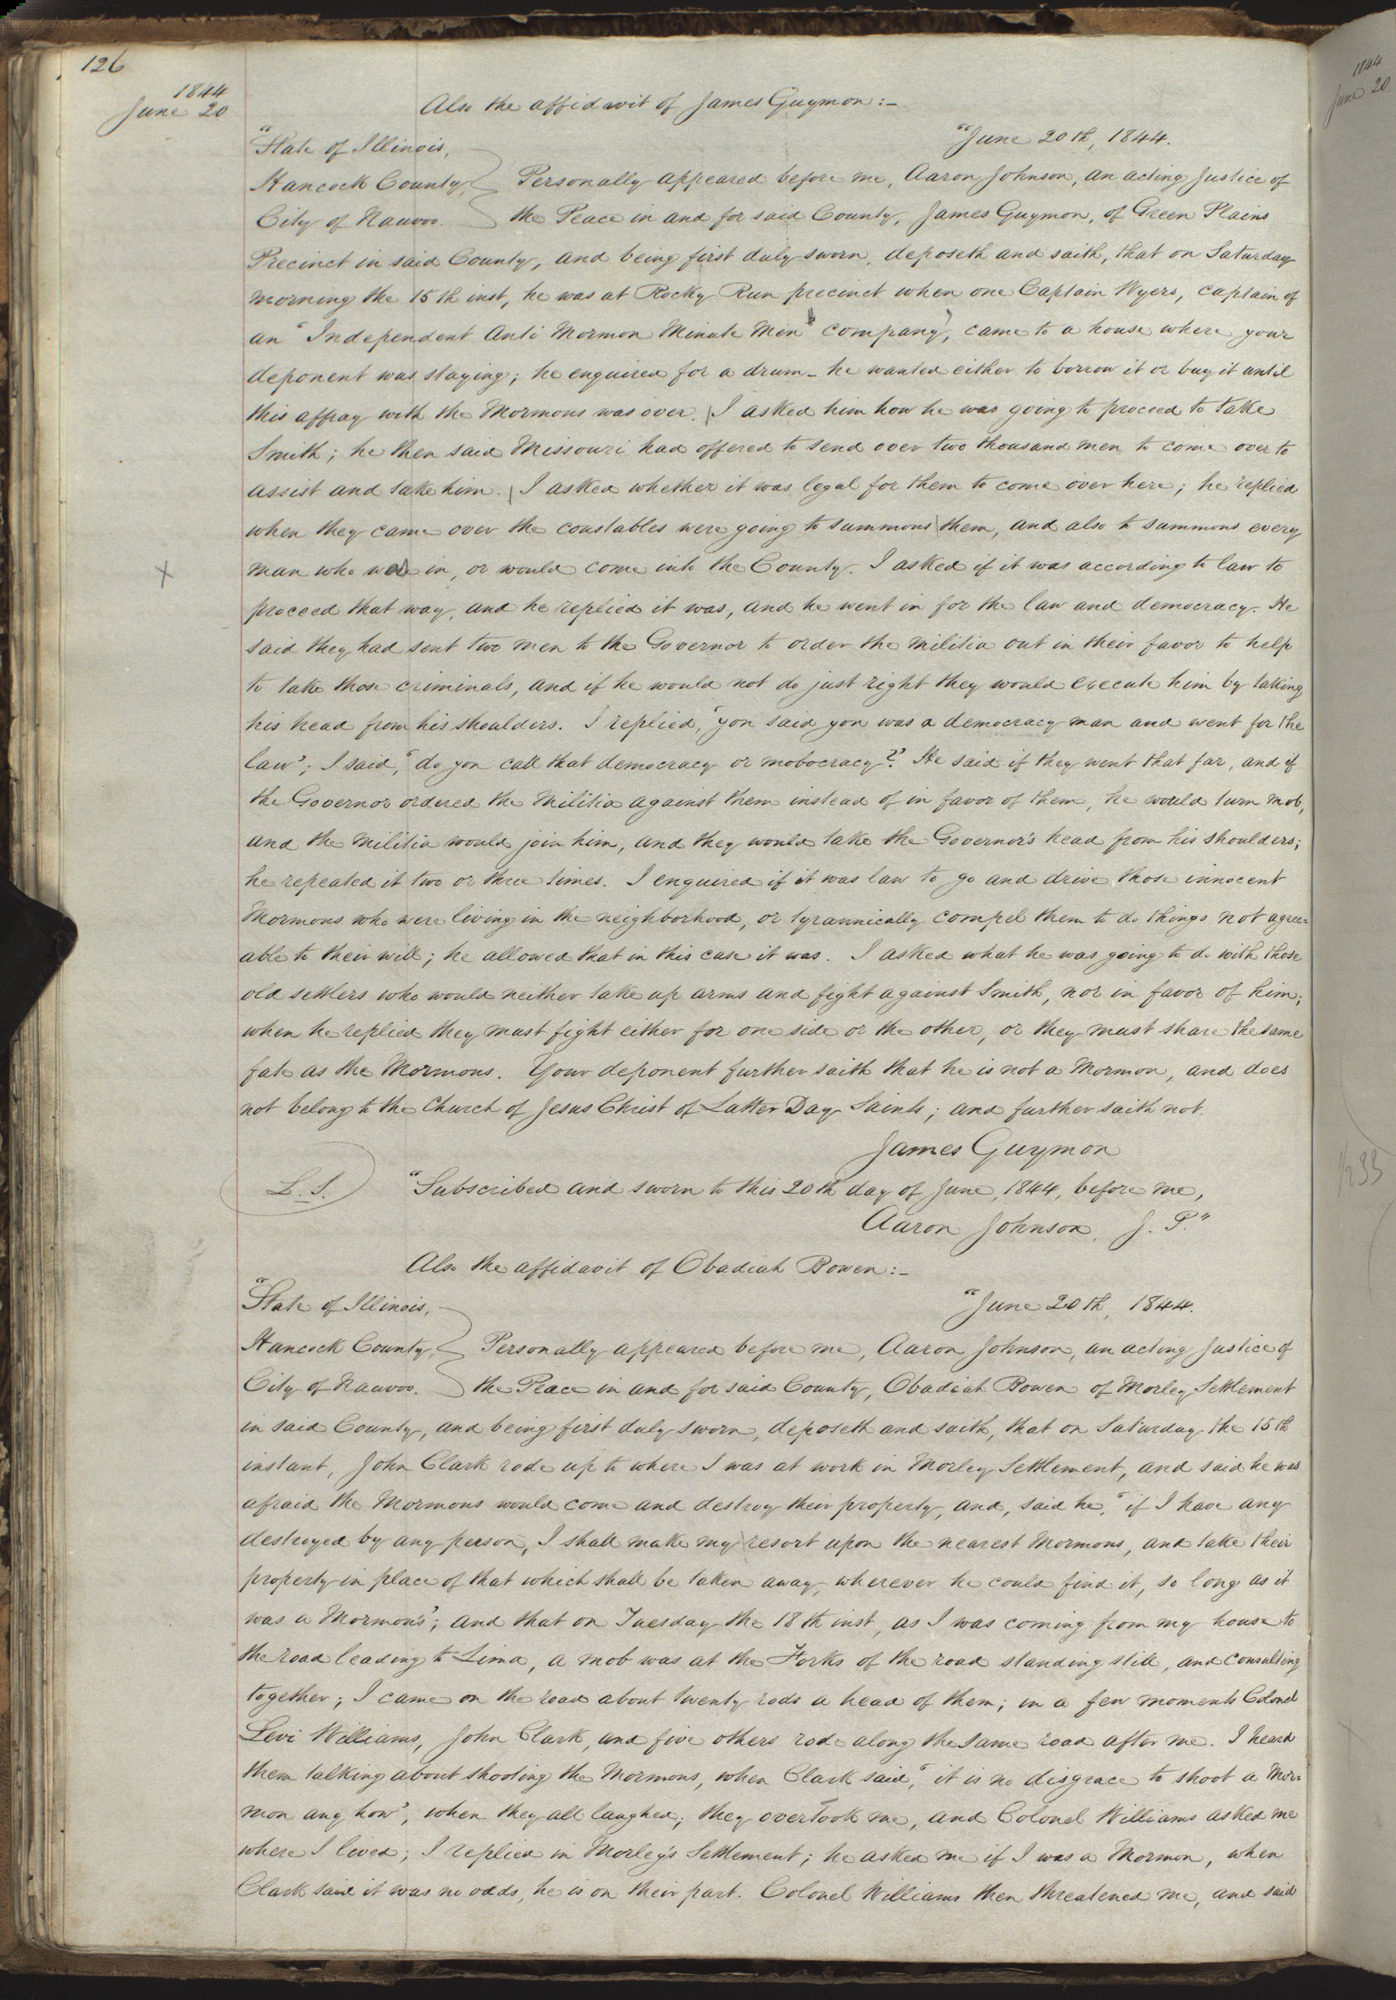 126
1844
June 20
Also the affidavit of James Guymon:—
"State of Illinois,
"June 20th, 1844.
Hancock County, Personally appeared before me, Aaron Johnson, an acting Justice of
City of Nauvoo. the Peace in and for said County, James Guymon, of Green Plains
Precinct in said County, and being first duly sworn, deposeth and saith, that on Saturday
morning the 15th inst, he was at Rocky Run precinct when one Captain Wyers, captain of
an "Independent Anti Mormon Minute Men" company, came to a house where your
deponent was staying; he enquired for a drum— he wanted either to borrow it or buy it until
this affray with the Mormons was over. I asked him how he was going to proceed to take
Smith; he then said Missouri had offered to send over two thousand men to come over to
assist and take him. I asked whether it was legal for them to come over here; he replied
when they came over the constables were going to summons them, and also to summons every
man who was in, or would come into the County. I asked if it was according to law to
X
proceed that way, and he replied it was, and he went in for the law and democracy. He
said they had sent two men to the Governor to order the militia out in their favor to help
to take those criminals, and if he would not do just right they would execute him by taking
his head from his shoulders. I replied, 'you said you was a democracy man and went for the
law'; I said, 'do you call that democracy or mobocracy?' He said if they went that far, and if
the Governor ordered the militia against them instead of in favor of them, he would turn mob,
and the militia would join him, and they would take the Governor's head from his shoulders;
he repeated it two or three times. I enquired if it was law to go and drive those innocent
Mormons who were living in the neighborhood, or tyrannically compel them to do things not agree=
able to their will; he allowed that in this case it was. I asked what he was going to do with those
old settlers who would neither take up arms and fight against Smith, nor in favor of him;
when he replied they must fight either for one side or the other, or they must share the same
fate as the Mormons. Your deponent further saith that he is not a Mormon, and does
not belong to the Church of Jesus Christ of Latter Day Saints; and further saith not.
James Guymon
L. S. "Subscribed and sworn to this 20th day of June, 1844, before me,
Aaron Johnson, J. P."
Also the affidavit of Obadiah Bowen:—
"State of Illinois,
"June 20th, 1844.
Hancock County, Personally appeared before me, Aaron Johnson, an acting Justice of
City of Nauvoo. the Peace in and for said County, Obadiah Bowen of Morley Settlement
in said County, and being first duly sworn, deposeth and saith, that on Saturday the 15th
instant, John Clark rode up to where I was at work in Morley Settlement, and said he was
afraid the Mormons would come and destroy their property, and, said he, 'if I have any
destroyed by any person, I shall make my resort upon the nearest Mormons, and take their
property in place of that which shall be taken away, wherever he could find it, so long as it
was a Mormon's'; and that on Tuesday the 18th inst, as I was coming from my house to
the road leading to Lima, a mob was at the Forks of the road standing still, and consulting
together; I came on the road about twenty rods a head of them; in a few moments Colonel
Levi Williams, John Clark, and five others rode along the same road after me. I heard
them talking about shooting the Mormons, when Clark said, 'it is no disgrace to shoot a Mor=
mon any how', when they all laughed; they overtook me, and Colonel Williams asked me
where I lived; I replied in Morley's Settlement; he asked me if I was a Mormon, when
Clark said it was no odds, he is on their part. Colonel Williams then threatened me, and said
1844
June 20